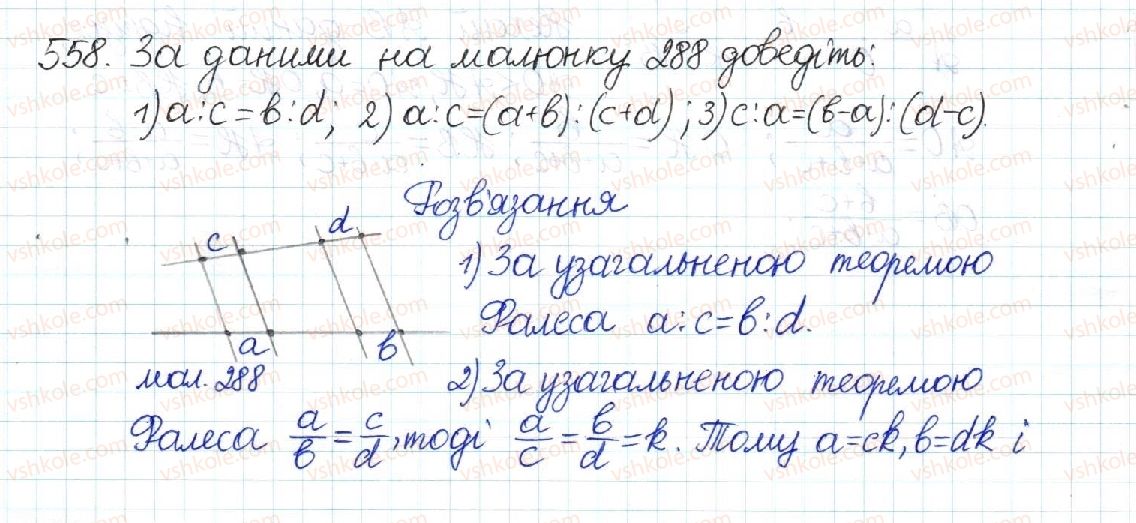 558. За даними на малюнку 288 доведіть:
1) a:c=в:d; 2) a:c=(a+в):(c+d); 3) c:a=(в-a):(d-c).
Розв'язання
c d
1) За узагальненою теоремою
Фалеса a:c=в:d.
a в
мал. 288
2) За узагальненою теоремою
Фалеса a/в=c/d, тоді a/c=в/d=k. Тому a=ck, в=dk і
vshkole.com